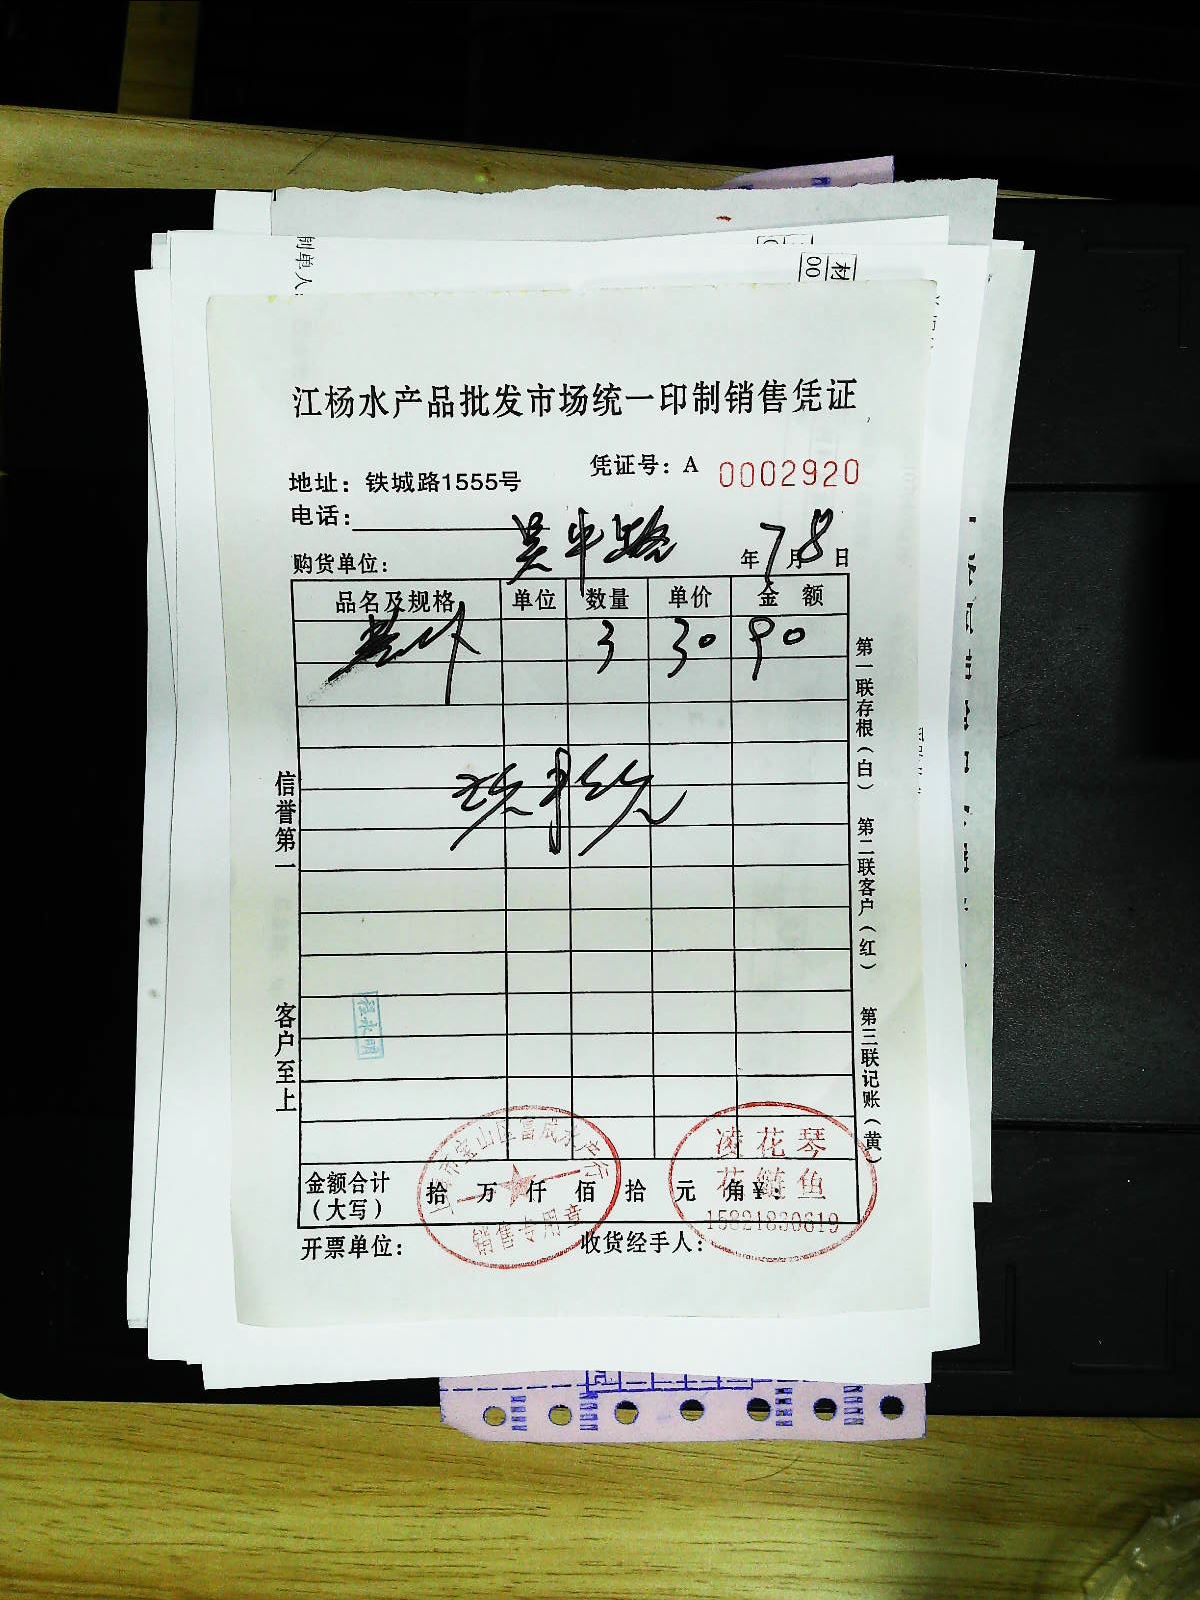 制单人:
材
00
江杨水产品批发市场统一印制销售凭证
凭证号：A 0002920
地址：铁城路1555号
电话：
购货单位： 吴平路 年7月8日
品名及规格 单位 数量 单价 金 额
3 30 90
信誉第一
客户至上
第一联存根（白）
第二联客户（红）
第三联记账（黄）
程永明
上海市宝山区富成水产行
销售专用章
凌花琴
花鲢鱼
15821830619
金额合计
（大写）
拾 万 仟 佰 拾 元 角 ¥：
开票单位： 收货经手人：